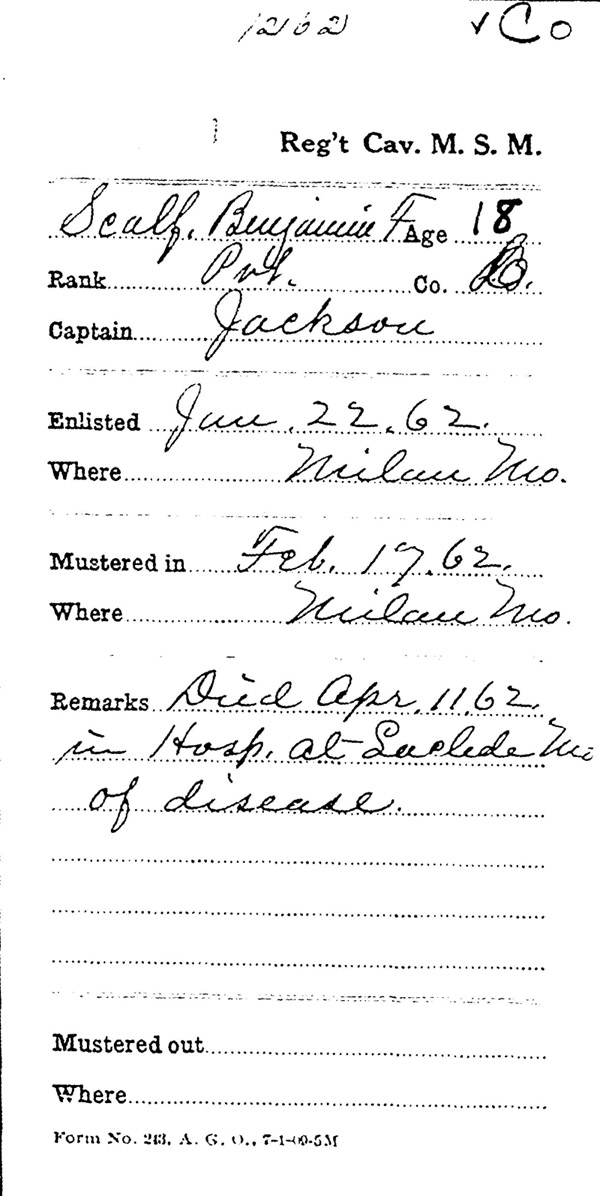 1262 ✓Co
1 Reg't Cav. M. S. M.
Scalf, Benjamin F. Age 18
Rank Pvt. Co. B.
Captain Jackson
Enlisted Jan. 22, 62.
Where Milan Mo.
Mustered in Feb. 17, 62.
Where Milan Mo.
Remarks Died Apr. 11, 62.
in Hosp. at Laclede Mo
of disease.
Mustered out
Where
Form No. 243, A. G. O., 7-1-09-5M